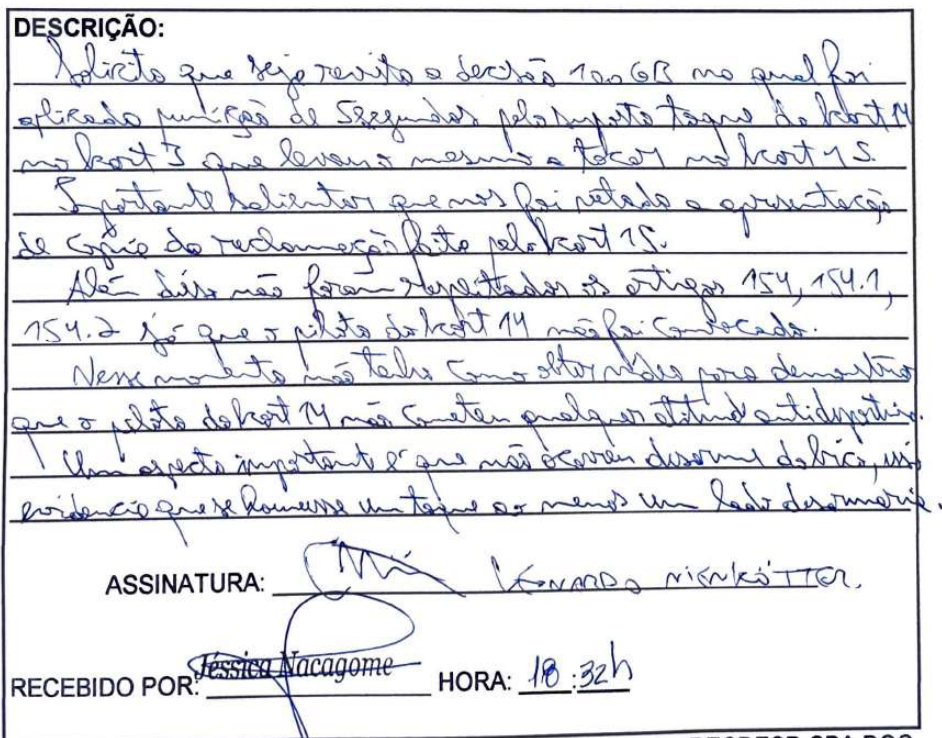 DESCRIÇÃO:
Solicito que seja revista a decisão 10.06B no qual foi
aplicado punição de 5 segundos pelo suposto toque do kart 14
no kart 3 que levou o mesmo a tocar no kart 15.
Importante salientar que nos foi vetado a apresentação
de cópia da reclamação feita pelo kart 15.
Além disso não foram respeitados os artigos 154, 154.1,
154.2 já que o piloto do kart 14 não foi convocado.
Nesse momento não tenho como obter vídeo para demonstrar
que o piloto do kart 14 não cometeu qualquer atitude antidesportiva.
Um aspecto importante é que não ocorreu desarme do bico, isso
evidencia que se houvesse um toque ao menos um lado desarmaria.
ASSINATURA: LEONARDO NIENKÖTTER.
RECEBIDO POR: Jéssica Nacagome HORA: 18:32h